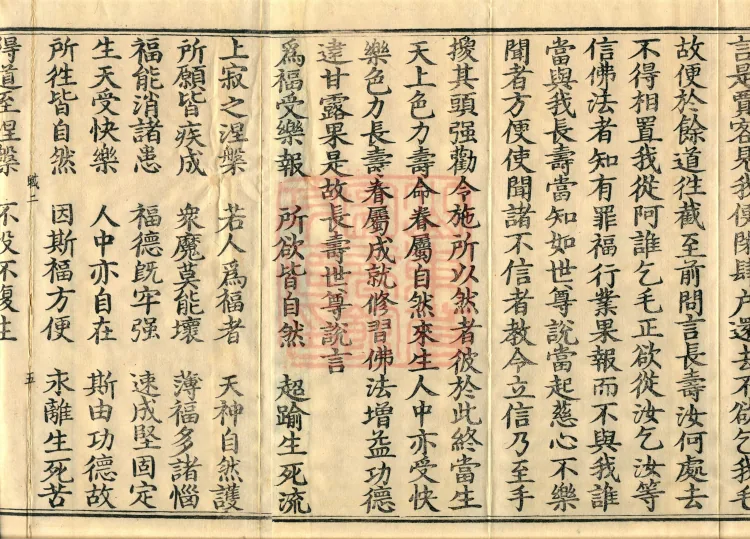 言是賈客見我便閉肆戶還去不欲乞我毛
故便於餘道往截至前問言長壽汝何處去
不得相置我從阿誰乞毛正欲從汝乞汝等
信佛法者知有罪福行業果報而不與我誰
當與我長壽當知如世尊說當起慈心不樂
聞者方便使聞諸不信者教令立信乃至手
援其頭强勸令施所以然者彼於此終當生
天上色力壽命眷屬自然來生人中亦受快
樂色力長壽眷屬成就修習佛法增益功德
逮甘露果是故長壽世尊說言
爲福受樂報 所欲皆自然 超踰生死流
上寂之涅槃 若人爲福者 天神自然護
所願皆疾成 衆魔莫能壞 薄福多諸惱
福能消諸患 福德旣牢强 速成堅固定
生天受快樂 人中亦自在 斯由功德故
所往皆自然 因斯福方便 永離生死苦
職二 五
得道至涅槃 不沒不復生